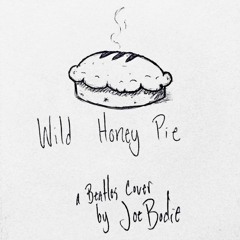 Wild Honey Pie
a Beatles Cover
by Joe Bodie